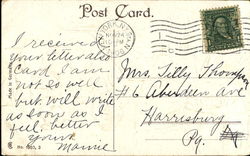 Post Card.
NOV 24
I received
your letter also
card. I am
not so well
but will write
as soon as I
feel better
yours
Mamie
Mrs. Tilly Thompson
#6 Aberdeen Ave
Harrisburg
Pa.
No. 3